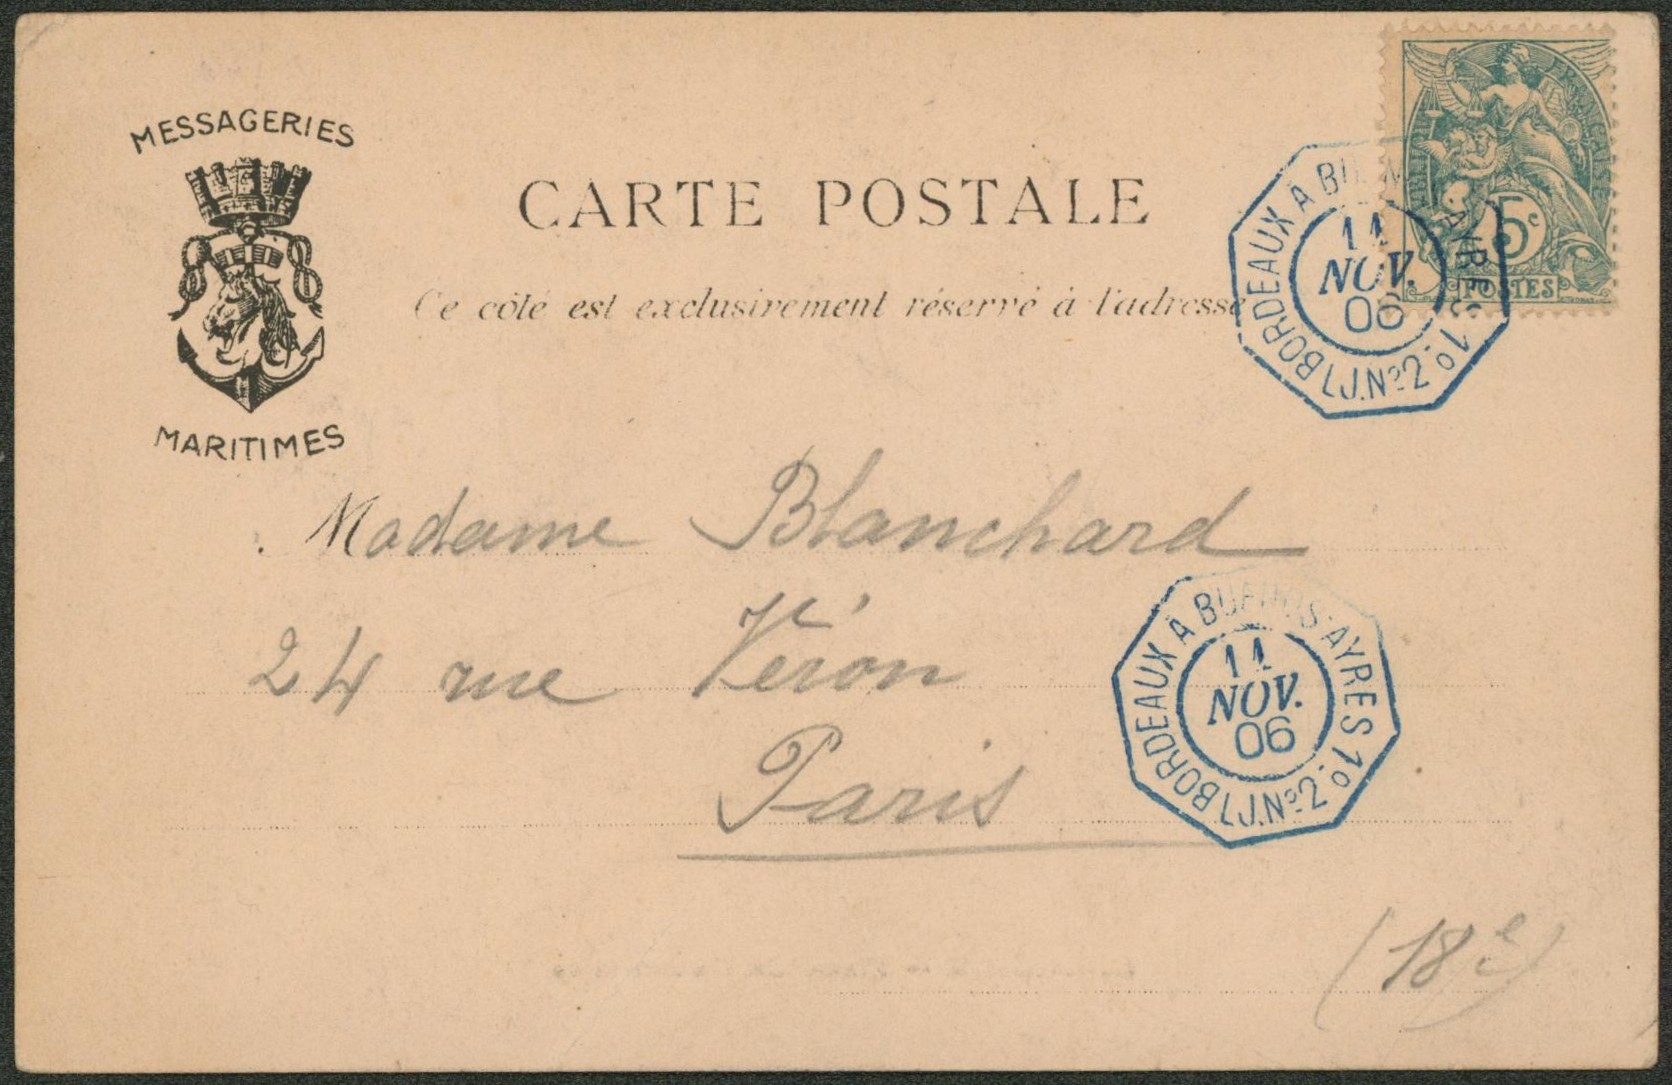 MESSAGERIES
MARITIMES
CARTE POSTALE
Ce côté est exclusivement réservé à l'adresse
RÉPUBLIQUE FRANÇAISE
5c
POSTES
BORDEAUX À BUENOS AYRES 1º
L.J.Nº2
11
NOV.
06
Madame Blanchard
24 rue Véron
Paris
BORDEAUX À BUENOS AYRES 1º
L.J.Nº2
11
NOV.
06
(18e)